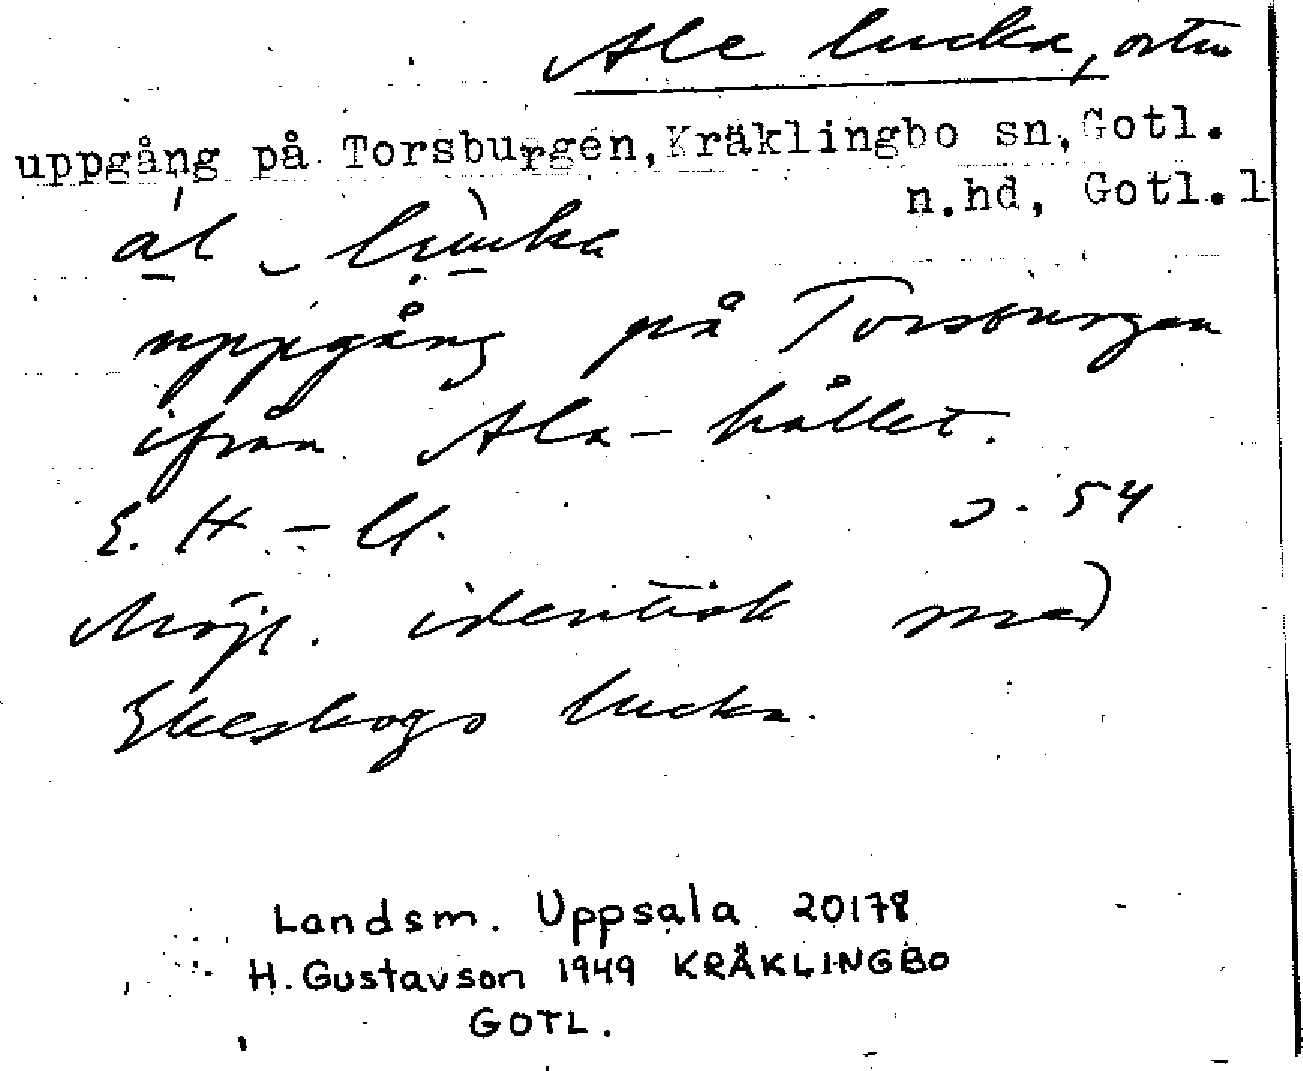 Ale lucka,
uppgång på Torsburgen, Kräklingbo sn, Gotl.
n.hd, Gotl.l
uppgång på Torsburgen
ifrån Ala-hållet.
E. H-U. s. 54
Möjl. identisk med
Ekeskogs lucka.
Landsm. Uppsala 20178
H. Gustavson 1949 KRÄKLINGBO
GOTL.